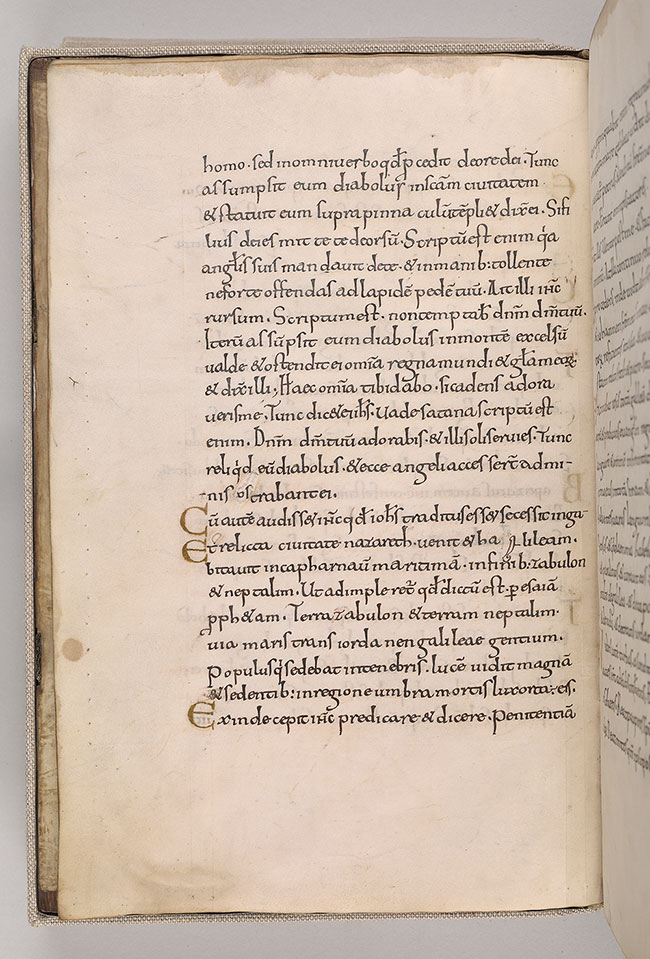 homo · sed inomniuerbo qđ pcedit deoredei · Tunc
assumpsit eum diabolus inscām ciuitatem ·
& statuit eum suprapinna culūtēpli & dix ei · Sifi
lius dei es mitte te deorsū · Scriptū est enim q̇a
anglis suis mandauit dete · & inmanib: tollent te
neforte offendas adlapidē pedē tuū · Ait illi ihc
rursum · Scriptum est · nontemptab dnm dmtuū ·
Iterū assūpsit eum diabolus inmontē excelsū
ualde & ostendit ei omīa regna mundi & glam eoꝝ
& dix illi · Haec omīa tibi dabo · sicadens adora
ueris me · Tunc dic& ei ihs · Uade satana scriptū est
enim · Dnm dm tuū adorabis · & illi soli seruies · Tunc
reliq̇d eū diabolus · & ecce angeli accesser̄t & admi-
nistrabant ei ·
Cū autē audiss& ihc qđ iohs traditus ess& secessit inga
Et relicta ciuitate nazareth · uenit & ha lileam ·
bitauit incapharnaū maritimā · infinib: zabulon
& neptalim · Ut adimpleret̄ qđ dictū est · p esaiā
pph&am · Terra zabulon & terram neptalim ·
uia maris trans iordanen galileae gentium ·
Populus q̇ sedebat intenebris · lucē uidit magnā
& sedentib: inregione umbra mortis lux orta · eis ·
Exinde cepit ihc predicare & dicere · Penitentiā